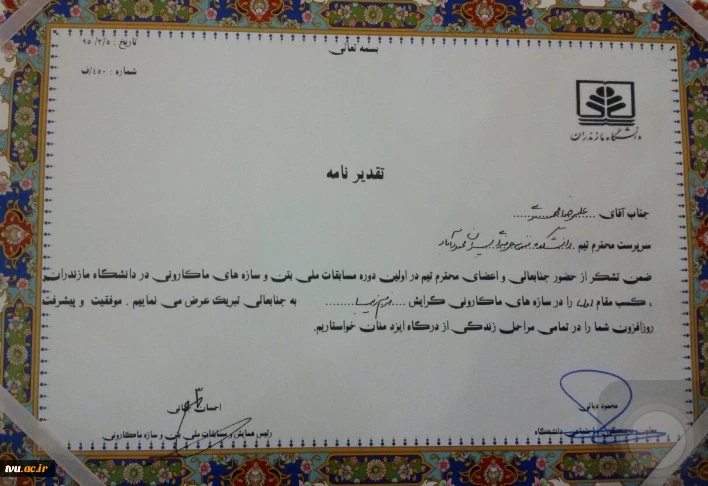 بسمه تعالی
تاریخ : ۹۵/۲/۵
شماره : ۴۵۰/ف
دانشگاه مازندران
تقدیر نامه
جناب آقای
سرپرست محترم تیم
ضمن تشکر از حضور جنابعالی و اعضای محترم تیم در اولین دوره مسابقات ملی بتن و سازه های ماکارونی در دانشگاه مازندران
، کسب مقام اول را در سازه های ماکارونی گرایش به جنابعالی تبریک عرض می نماییم . موفقیت و پیشرفت
روزافزون شما را در تمامی مراحل زندگی از درگاه ایزد منان خواستاریم.
محمود دیانی
دانشگاه
احسان
رئیس همایش و مسابقات ملی بتن و سازه ماکارونی
tvu.ac.ir